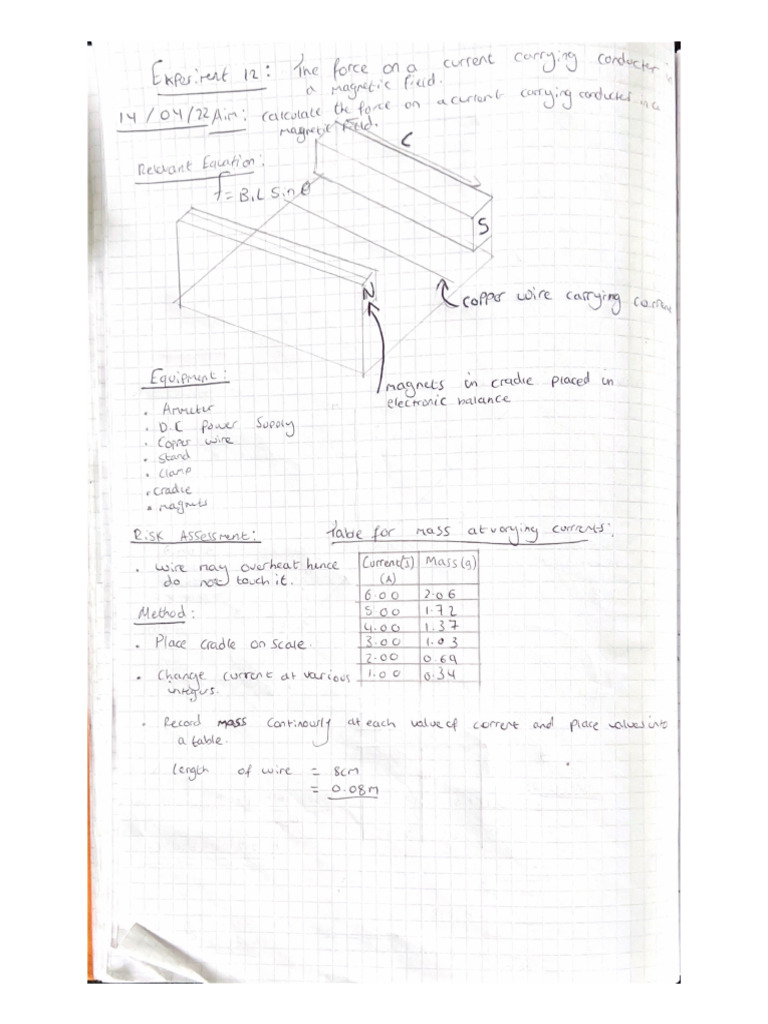 Experiment 12: The force on a current carrying conducter in
a magnetic field.
14/04/22 Aim: calculate the force on a current carrying conducter in a
magnetic field.
Relevant Equation:
f = BiL Sin θ
L
S
N
copper wire carrying current
magnets in cradle placed in
electronic balance
Equipment:
• Ammeter
• D.C power supply
• Copper wire
• stand
• clamp
• cradle
• magnets
Risk Assessment:
• wire may overheat hence
do not touch it.
Table for mass at varying currents:
Current(s) (A) Mass(g)
6.00 2.06
5.00 1.72
4.00 1.37
3.00 1.03
2.00 0.69
1.00 0.34
Method:
• Place cradle on scale.
• Change current at various
integers.
• Record mass continously at each value of current and place values into
a table.
length of wire = 8cm
= 0.08m